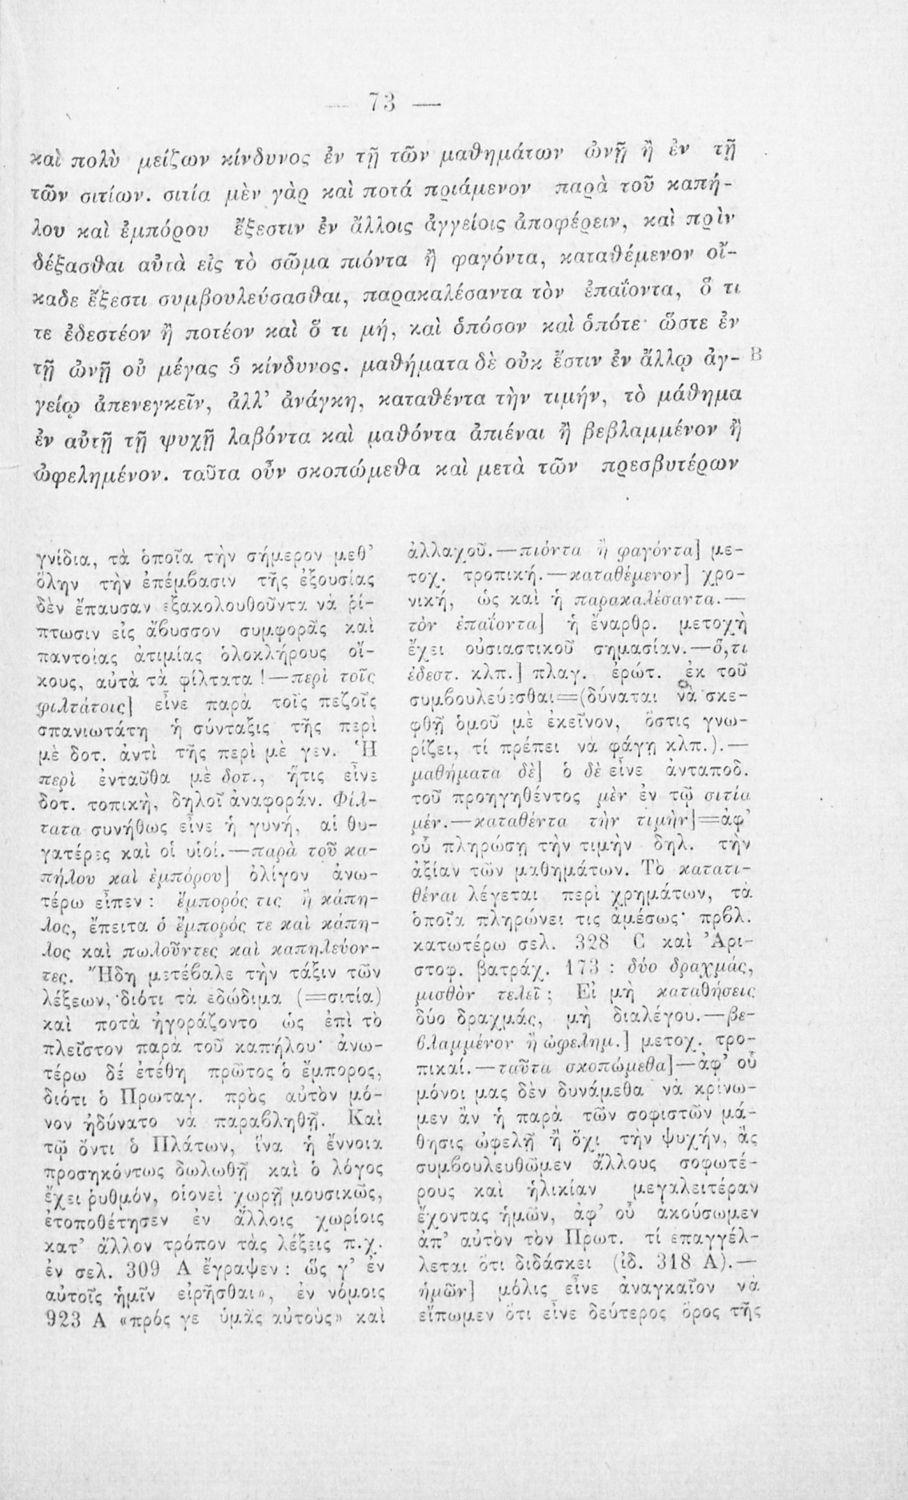 — 73 —
καὶ πολὺ μείζων κίνδυνος ἐν τῇ τῶν μαθημάτων ὠνῇ ἢ ἐν τῇ
τῶν σιτίων. σιτία μὲν γὰρ καὶ ποτά πριάμενον παρὰ τοῦ καπή-
λου καὶ ἐμπόρου ἔξεστιν ἐν ἄλλοις ἀγγείοις ἀποφέρειν, καὶ πρὶν
δέξασθαι αὐτὰ εἰς τὸ σῶμα πιόντα ἢ φαγόντα, καταθέμενον οἴ-
καδε ἔξεστι συμβουλεύσασθαι, παρακαλέσαντα τὸν ἐπαΐοντα, ὅ τι
τε ἐδεστέον ἢ ποτέον καὶ ὅ τι μή, καὶ ὁπόσον καὶ ὁπότε· ὥστε ἐν
τῇ ὠνῇ οὐ μέγας ὁ κίνδυνος. μαθήματα δὲ οὐκ ἔστιν ἐν ἄλλῳ ἀγ- B
γείῳ ἀπενεγκεῖν, ἀλλ' ἀνάγκη, καταθέντα τὴν τιμήν, τὸ μάθημα
ἐν αὐτῇ τῇ ψυχῇ λαβόντα καὶ μαθόντα ἀπιέναι ἢ βεβλαμμένον ἢ
ὠφελημένον. ταῦτα οὖν σκοπώμεθα καὶ μετὰ τῶν πρεσβυτέρων
γνίδια, τὰ ὁποῖα τὴν σήμερον μεθ'
ὅλην τὴν ἐπέμβασιν τῆς ἐξουσίας
δὲν ἔπαυσαν ἐξακολουθοῦντα νὰ ῥί-
πτωσιν εἰς ἄβυσσον συμφορᾶς καὶ
παντοίας ἀτιμίας ὁλοκλήρους οἴ-
κους, αὐτὰ τὰ φίλτατα !—περὶ τοῖς
φιλτάτοις] εἶνε παρὰ τοῖς πεζοῖς
σπανιωτάτη ἡ σύνταξις τῆς περὶ
μὲ δοτ. ἀντὶ τῆς περὶ μὲ γεν. Ἡ
περὶ ἐνταῦθα μὲ δοτ., ἥτις εἶνε
δοτ. τοπική, δηλοῖ ἀναφοράν. Φίλ-
τατα συνήθως εἶνε ἡ γυνή, αἱ θυ-
γατέρες καὶ οἱ υἱοί.—παρὰ τοῦ κα-
πήλου καὶ ἐμπόρου] ὀλίγον ἀνω-
τέρω εἶπεν : ἔμπορός τις ἢ κάπη-
λος, ἔπειτα ὁ ἔμπορός τε καὶ κάπη-
λος καὶ πωλοῦντες καὶ καπηλεύον-
τες. Ἤδη μετέβαλε τὴν τάξιν τῶν
λέξεων, διότι τὰ ἐδώδιμα (=σιτία)
καὶ ποτὰ ἠγοράζοντο ὡς ἐπὶ τὸ
πλεῖστον παρὰ τοῦ καπήλου· ἀνω-
τέρω δέ ἐτέθη πρῶτος ὁ ἔμπορος,
διότι ὁ Πρωταγ. πρὸς αὐτὸν μό-
νον ἠδύνατο νὰ παραβληθῇ. Καὶ
τῷ ὄντι ὁ Πλάτων, ἵνα ἡ ἔννοια
προσηκόντως δωλωθῇ καὶ ὁ λόγος
ἔχει ῥυθμόν, οἱονεὶ χωρῇ μουσικῶς,
ἐτοποθέτησεν ἐν ἄλλοις χωρίοις
κατ' ἄλλον τρόπον τὰς λέξεις π.χ.
ἐν σελ. 309 A ἔγραψεν : ὥς γ' ἐν
αὐτοῖς ἡμῖν εἰρῆσθαι», ἐν νόμοις
923 A «πρός γε ὑμᾶς αὐτοὺς» καὶ
ἀλλαχοῦ.—πιόντα ἢ φαγόντα] με-
τοχ. τροπική.—καταθέμενον] χρο-
νική, ὡς καὶ ἡ παρακαλέσαντα.—
τὸν ἐπαΐοντα] ἡ ἔναρθρ. μετοχὴ
ἔχει οὐσιαστικοῦ σημασίαν.—ὅ,τι
ἐδεστ. κλπ.] πλαγ. ἐρώτ. ἐκ τοῦ
συμβουλεύεσθαι=(δύναται νὰ σκε-
φθῇ ὁμοῦ μὲ ἐκεῖνον, ὅστις γνω-
ρίζει, τί πρέπει νὰ φάγῃ κλπ.).—
μαθήματα δὲ] ὁ δὲ εἶνε ἀνταποδ.
τοῦ προηγηθέντος μὲν ἐν τῷ σιτία
μέν.—καταθέντα τὴν τιμὴν]=ἀφ'
οὗ πληρώσῃ τὴν τιμὴν δηλ. τὴν
ἀξίαν τῶν μαθημάτων. Τὸ κατατι-
θέναι λέγεται περὶ χρημάτων, τὰ
ὁποῖα πληρώνει τις ἀμέσως· πρβλ.
κατωτέρω σελ. 328 C καὶ Ἀρι-
στοφ. βατράχ. 173 : δύο δραχμάς,
μισθὸν τελεῖ ; Εἰ μὴ καταθήσεις
δύο δραχμάς, μὴ διαλέγου.—βε-
βλαμμένον ἢ ὠφελημ.] μετοχ. τρο-
πικαί.—ταῦτα σκοπώμεθα]—ἀφ' οὗ
μόνοι μας δὲν δυνάμεθα νὰ κρίνω-
μεν ἂν ἡ παρὰ τῶν σοφιστῶν μά-
θησις ὠφελῇ ἢ ὄχι τὴν ψυχήν, ἂς
συμβουλευθῶμεν ἄλλους σοφωτέ-
ρους καὶ ἡλικίαν μεγαλειτέραν
ἔχοντας ἡμῶν, ἀφ' οὗ ἀκούσωμεν
ἀπ' αὐτὸν τὸν Πρωτ. τί ἐπαγγέλ-
λεται ὅτι διδάσκει (ἰδ. 318 A).—
ἡμῶν] μόλις εἶνε ἀναγκαῖον νὰ
εἴπωμεν ὅτι εἶνε δεύτερος ὅρος τῆς